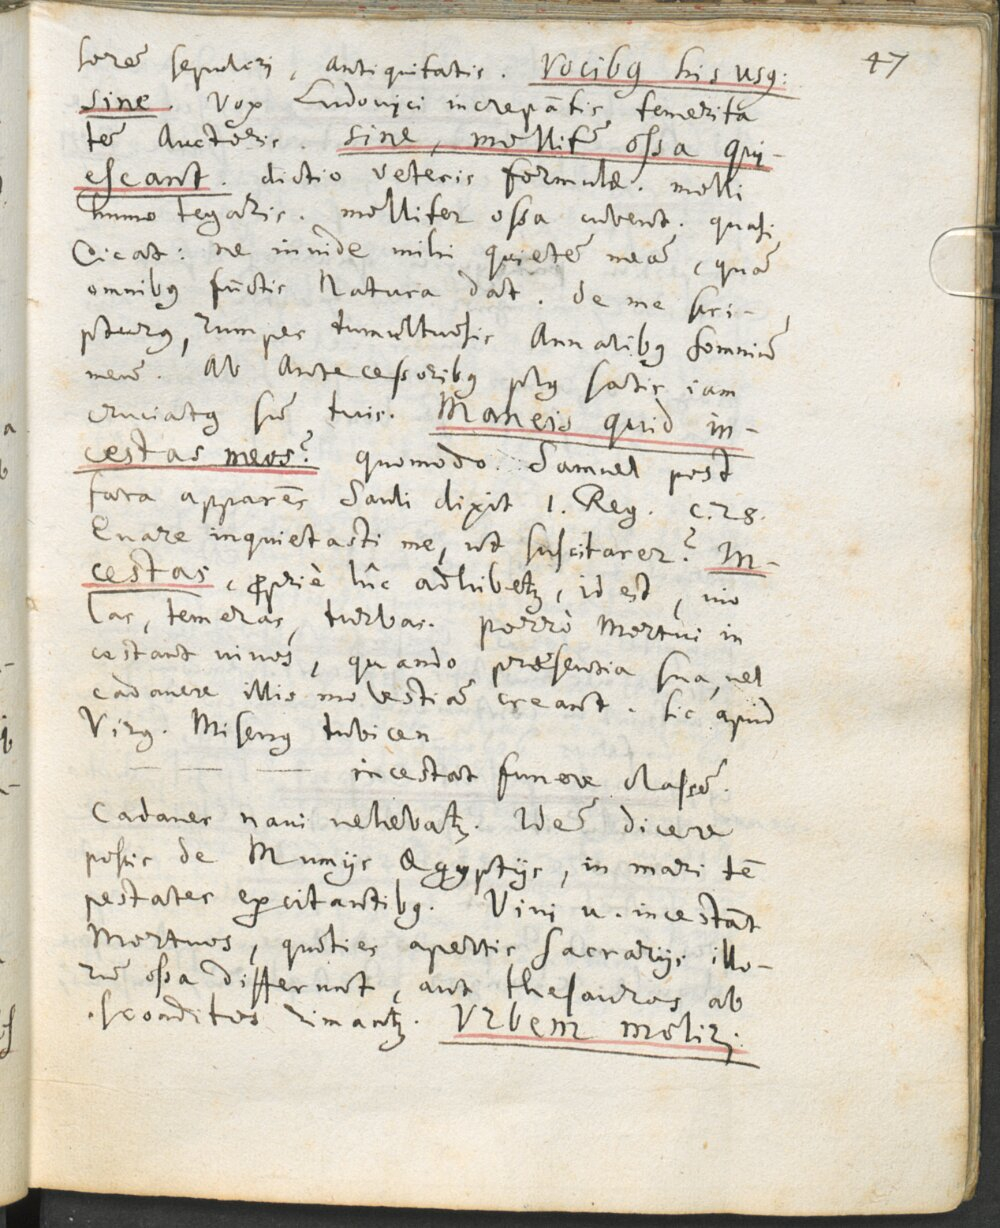 47
lorē sepulcri, antiquitatis. Vocibq his usq:
sine. Vox Ludovici increpātis, temerita
tē Auctoris. sine, mollitē ossa qui-
escant. dictio veteris formulæ. molli
humo tegaris. molliter ossa cubent. quasi
dicat: ne invide mihi quietē meā, quā
omnibq fūctis Natura dat. de me scri-
pturq, rumpes tumultuosis Annalibq somniū
meū. Ab Antecessoribq plq satis iam
cruciatq sū tuis. Maneis quid in-
cestas meos? quomodo Samuel post
fata apparēs Sauli dixit 1. Reg. c. 28.
Quare inquietasti me, ut suscitarer? In-
cestas, propriè hîc adhibetz, id est, vio
las, temeras, turbas. porrò Mortui in
cestant vivos, quando præsentia sua, vel
cadavere illis molestiā creant. sic apud
Virg. Misenq tubicen
— — — incestat funere classē.
Cadaver navi vehebatz. Idē dicere
possis de Mumijs Ægyptijs, in mari tē
pestates excitantibq. Vivi u. incestāt
Mortuos, quoties apertis Sacrarijs illo-
rū ossa differunt, aut thesauros ab
sconditos rimantz. Urbem moliri.